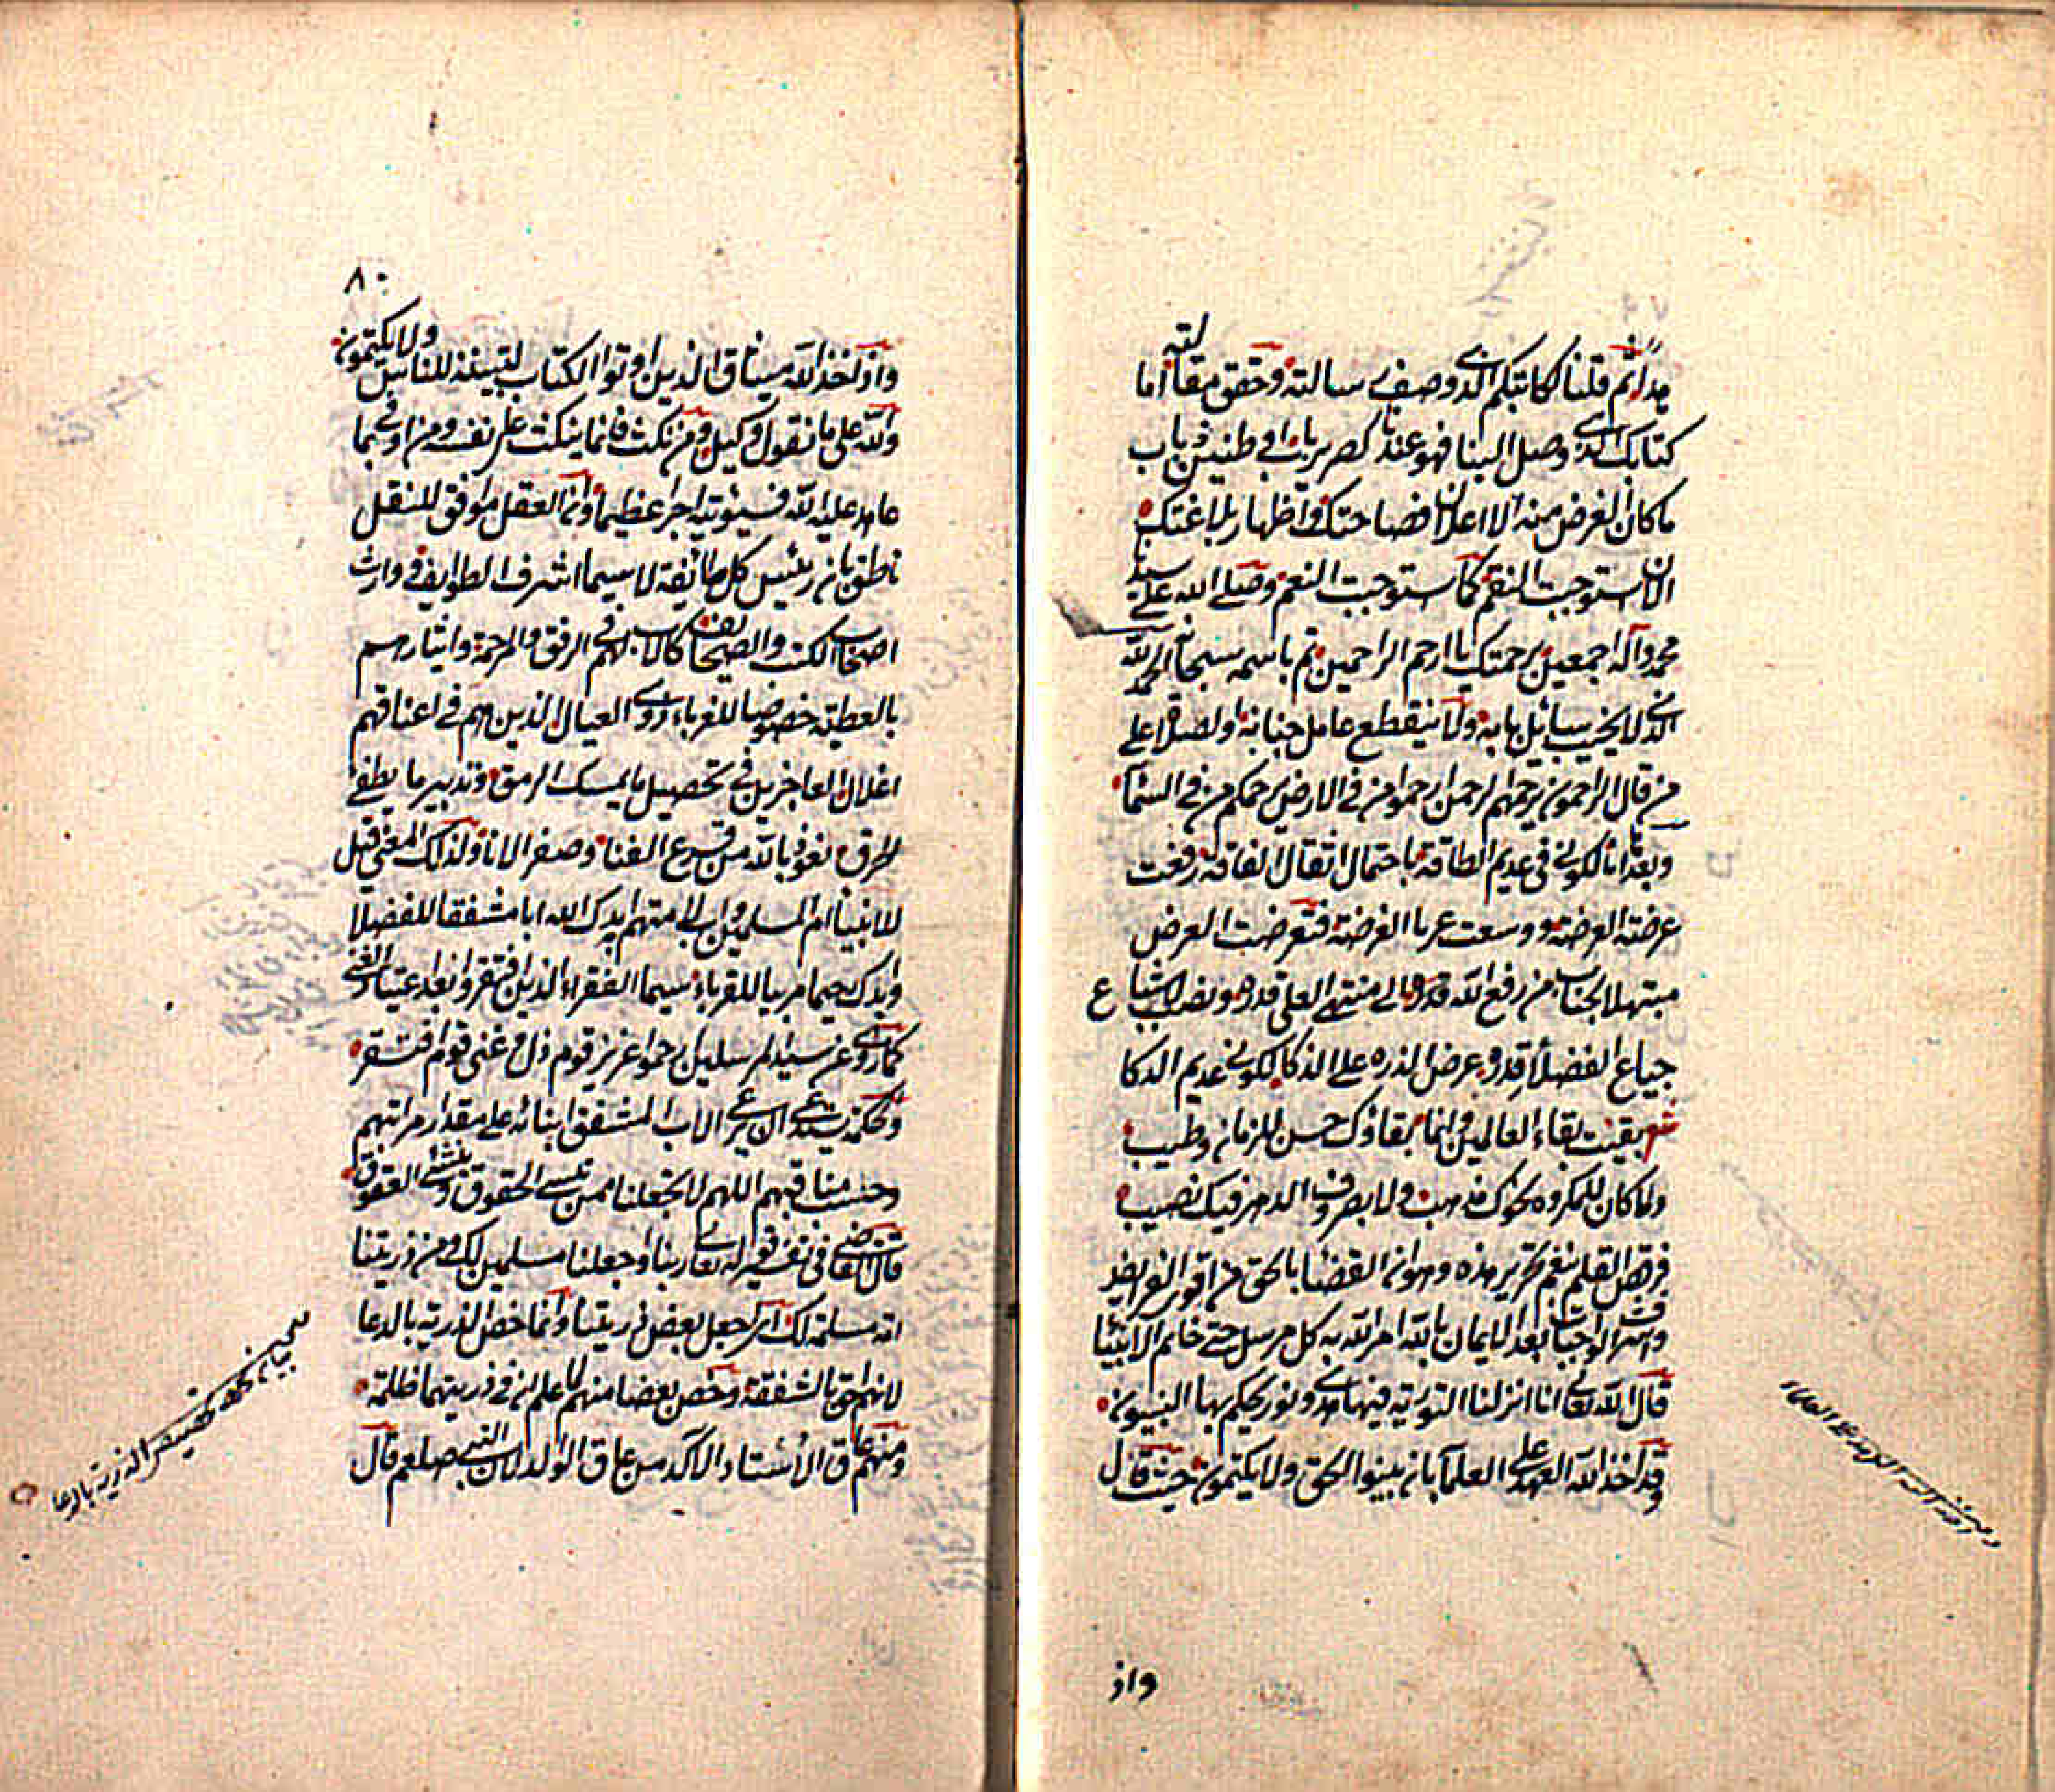 ثم قلنا لكاتبكم الذي وصف رسالته وحقق مقالته اما
كتابك الذي وصل الينا فهو عندنا كصرير باب او طنين ذباب
ما كان الغرض منه الا اعلان فصاحتك واظهار بلاغتك
الان استوجبت النقم كما استوجبت النعم وصلى الله على سيدنا
محمد وآله اجمعين برحمتك يا ارحم الراحمين تم باسمه سبحانه الحمد لله
الذي لا يخيب سائل بابه ولا ينقطع عامل جنابه ولصلاة على
من قال الراحمون يرحمهم الرحمن ارحموا من في الارض يرحمكم من في السماء
وبعد انا لكوني في عديم الطاقة باحتمال اثقال الفاقة رفعت
عرضته العرضة ووسعت عربا الغرضة فتعرضت العرض
مبتهلا لجناب من رفع الله قدره الى منتهى العلى قدره ونصب لاشباع
جياع الفضلا قدره عرض الذره على الذكا لكوني عديم الدكا
شعر بقيت بقاء العالمين وانما بقاؤك حسن للزمان وطيب
ولا كان للمكروه نحوك مذهب ولا لصروف الدهر فيك نصيب
فرقص القلم بنغم تحرير هذه وهو ان القضا بالحق من اقوى الفرايض
واشرف الواجبات بعد الايمان بالله امر الله به كل مرسل حتى خاتم الانبيا
قال الله تعالى انا انزلنا التورية فيها هدى ونور يحكم بها النبيون
وقد اخذ الله العهد على العلماء بان يبينوا الحق ولا يكتمون حيث قال
واذ
٨٠
واذ اخذ الله ميثاق الذين اوتوا الكتاب لتبيننه للناس ولا يكتمونه
والله على ما نقول وكيل ومن نكث فانما ينكث على نفسه ومن اوفى بما
عاهد عليه الله فسيؤتيه اجرا عظيما وان العقل موافق للنقل
ناطق بان رئيس كل طائفة لا سيما اشرف الطوايف وارث
اصحاب الكتب والصحائف كالاب لهم في الرفق والمرحمة وايثارهم
بالعطية خصوصا للغرباء ذوي العيال الذين هم في اعناقهم
اغلال العاجزين في تحصيل ما يمسك الرمق وتدبير ما يطفى
الحرق نعوذ بالله من قرع الفنا وصفر الانا ولذلك المعنى قيل
للانبيا ام المسلمين اب لامتهم ايدك الله ابا مشفقا للفضلا
وابدك رحيما مربيا للقرباء سيما الفقراء الذين افتقروا بعد اعتياد الغنى
كما روي عن سيد المرسلين ارحموا عزيز قوم ذل وغني قوم افتقر
والحكمة تستدعي ان يرعى الاب المشفق ابنائه على مقدار مراتبهم
وحسب مناقبهم اللهم لا تجعلنا ممن ينسى الحقوق وينشئ العقوق
قال القاضي في تفسير قوله تعالى ربنا واجعلنا مسلمين لك ومن ذريتنا
امة مسلمة لك اى اجعل بعض ذريتنا وانما خص الذرية بالدعا
لانهم احق بالشفقة وخص بعضا منهم لما علم ان في ذريتهما ظلمة
ومنهم عاق الاستاد الاكد من عاق الوالد لان النبي صلعم قال
بيان نكتة تخصيص الذرية بالدعا